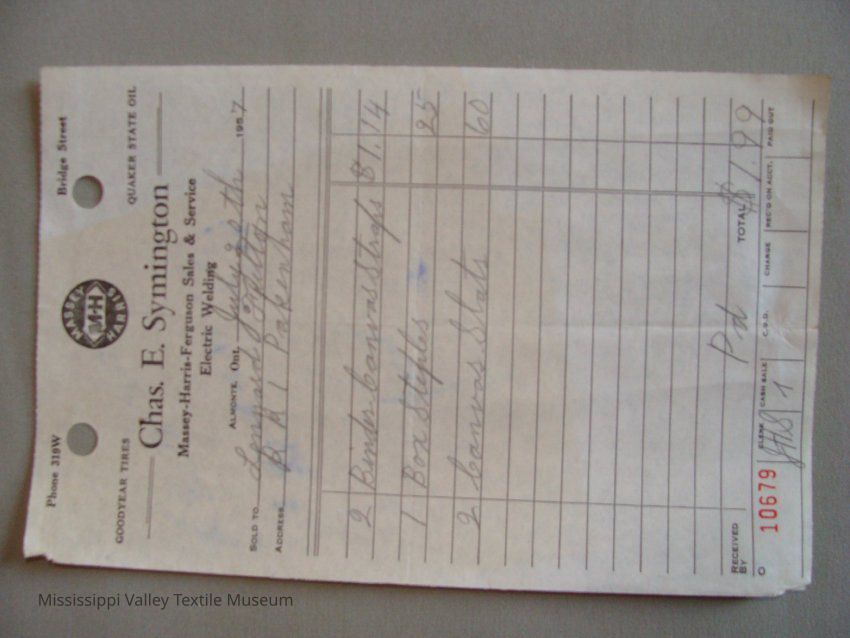 Phone 319W Bridge Street
MASSEY M-H HARRIS
GOODYEAR TIRES QUAKER STATE OIL
Chas. E. Symington
Massey-Harris-Ferguson Sales & Service
Electric Welding
ALMONTE, Ont. July 195 7
SOLD TO Lennard Fulton
ADDRESS R R 1 Pakenham
2 Binder Canvas Straps $1.14
1 Box Steples 25
2 Canvas Slats 60
Pd
RECEIVED BY TOTAL $1.99
O 10679 CLERK CASH SALE 1 C.O.D. CHARGE REC'D ON ACCT. PAID OUT
Mississippi Valley Textile Museum